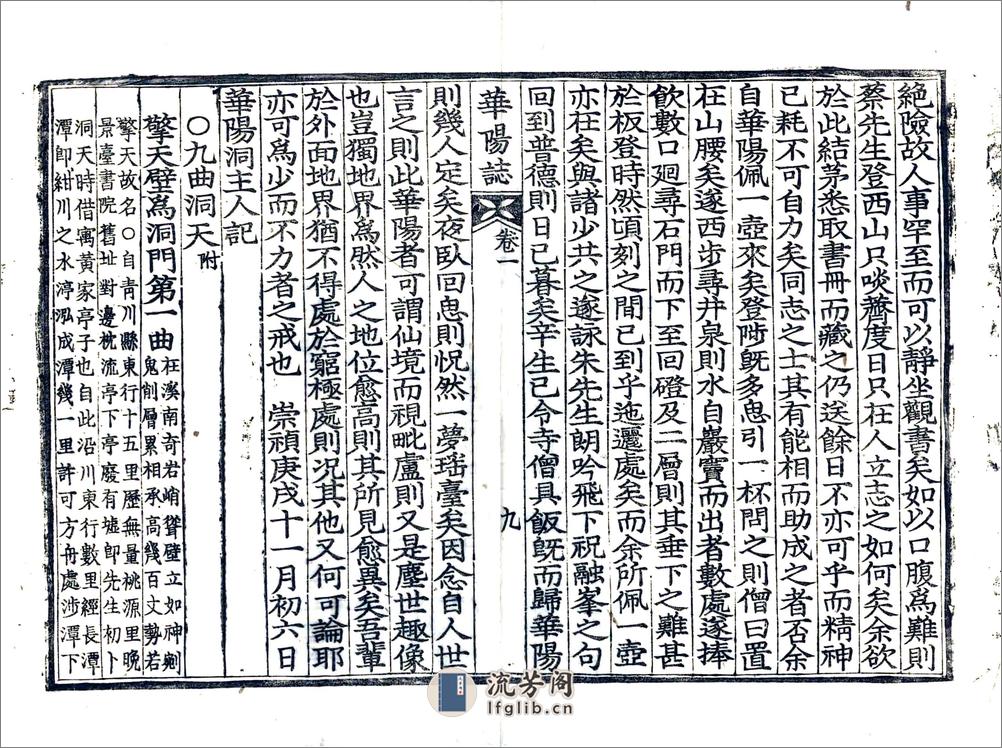 絶險故人事罕至而可以靜坐觀書矣如以口腹爲難則
蔡先生登西山只啖薺度日只在人立志之如何矣余欲
於此結茅悉取書冊而藏之仍送餘日不亦可乎而精神
已耗不可自力矣同志之士其有能相而助成之者否余
自華陽佩一壺來矣登陟旣多思引一杯問之則僧曰置
在山腰矣遂西步尋井泉則水自巖竇而出者數處遂捧
飮數口廻尋石門而下至回磴及二層則其垂下之難甚
於板登時然頃刻之間已到乎迤邐處矣而余所佩一壺
亦在矣與諸少共之遂詠朱先生朗吟飛下祝融峯之句
回到普德則日已暮矣辛生已令寺僧具飯旣而歸華陽
華陽誌
卷一
九
則幾人定矣夜臥回思則怳然一夢瑤臺矣因念自人世
言之則此華陽者可謂仙境而視毗盧則又是塵世趣像
也豈獨地界爲然人之地位愈高則其所見愈異矣吾輩
於外面地界猶不得處於窮極處則况其他又何可論耶
亦可爲少而不力者之戒也 崇禎庚戌十一月初六日
華陽洞主人記
〇九曲洞天附
擎天壁爲洞門第一曲在溪南奇岩峭聳壁立如神剜
鬼削層累相承高幾百丈勢若
擎天故名〇自靑川縣東行十五里歷無量桃源里晩
景臺書院舊址對邊枕流亭下亭廢有墟卽先生初卜
洞天時借寓黃家亭子也自此沿川東行數里經長潭
潭卽紺川之水渟泓成潭幾一里許可方舟處涉潭下
流芳阁
lfglib.cn